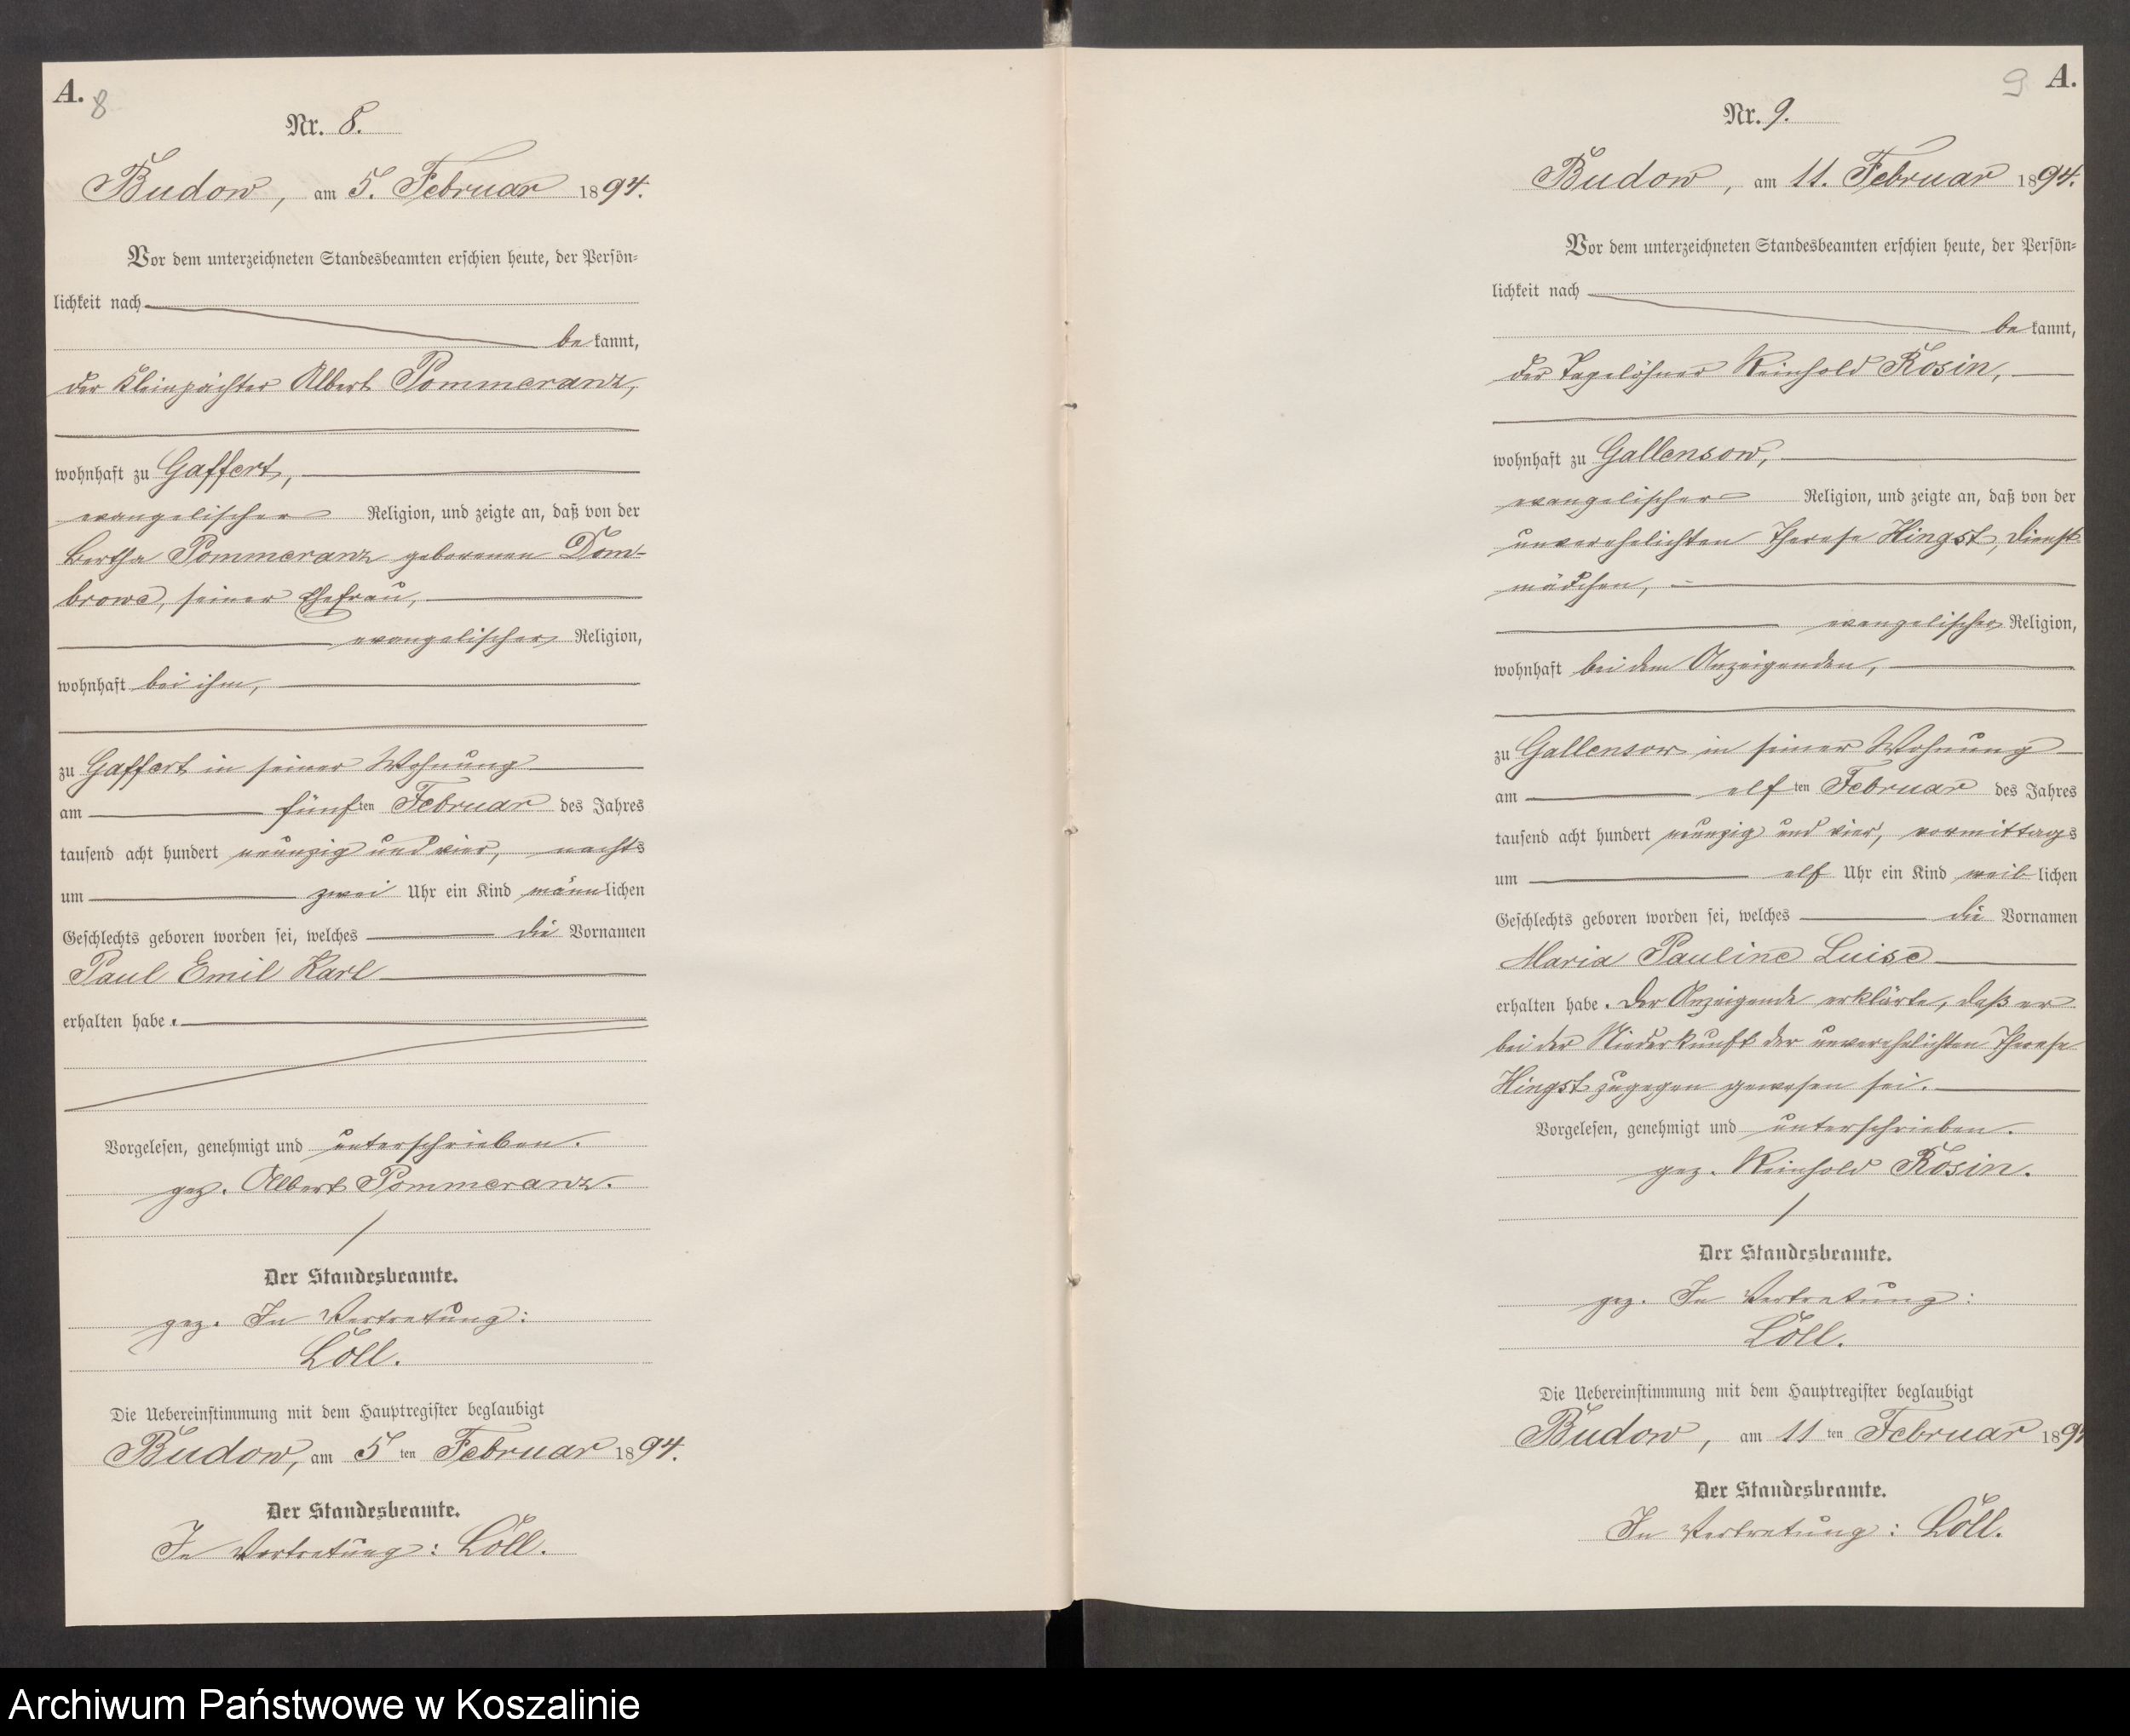 A.
8
Nr. 8.
Budow, am 5. Februar 1894.
Vor dem unterzeichneten Standesbeamten erschien heute, der Persön-
lichkeit nach
be kannt,
der Kleinpächter Albert Pommeranz,
wohnhaft zu Gaffert,
evangelischer Religion, und zeigte an, daß von der
Bertha Pommeranz geborenen Dom-
browe, seiner Ehefrau,
evangelischer Religion,
wohnhaft bei ihm,
zu Gaffert in seiner Wohnung
am fünften Februar des Jahres
tausend acht hundert neunzig und vier, nachts
um zwei Uhr ein Kind männlichen
Geschlechts geboren worden sei, welches die Vornamen
Paul Emil Karl
erhalten habe.
Vorgelesen, genehmigt und unterschrieben.
gez. Albert Pommeranz.
Der Standesbeamte.
gez. In Vertretung:
Löll.
Die Uebereinstimmung mit dem Hauptregister beglaubigt
Budow, am 5ten Februar 1894.
Der Standesbeamte.
In Vertretung: Löll.
9
A.
Nr. 9.
Budow, am 11. Februar 1894.
Vor dem unterzeichneten Standesbeamten erschien heute, der Persön-
lichkeit nach
be kannt,
der Tagelöhner Reinhold Rosin,
wohnhaft zu Gallensow,
evangelischer Religion, und zeigte an, daß von der
unverehelichten Therese Hingst, Dienst-
mädchen,
evangelischer Religion,
wohnhaft bei dem Anzeigenden,
zu Gallensow in seiner Wohnung
am elften Februar des Jahres
tausend acht hundert neunzig und vier, vormittags
um elf Uhr ein Kind weiblichen
Geschlechts geboren worden sei, welches die Vornamen
Maria Pauline Luise
erhalten habe. Der Anzeigende erklärte, daß er
bei der Niederkunft der unverehelichten Therese
Hingst zugegen gewesen sei.
Vorgelesen, genehmigt und unterschrieben.
gez. Reinhold Rosin.
Der Standesbeamte.
gez. In Vertretung:
Löll.
Die Uebereinstimmung mit dem Hauptregister beglaubigt
Budow, am 11ten Februar 1894
Der Standesbeamte.
In Vertretung: Löll.
Archiwum Państwowe w Koszalinie